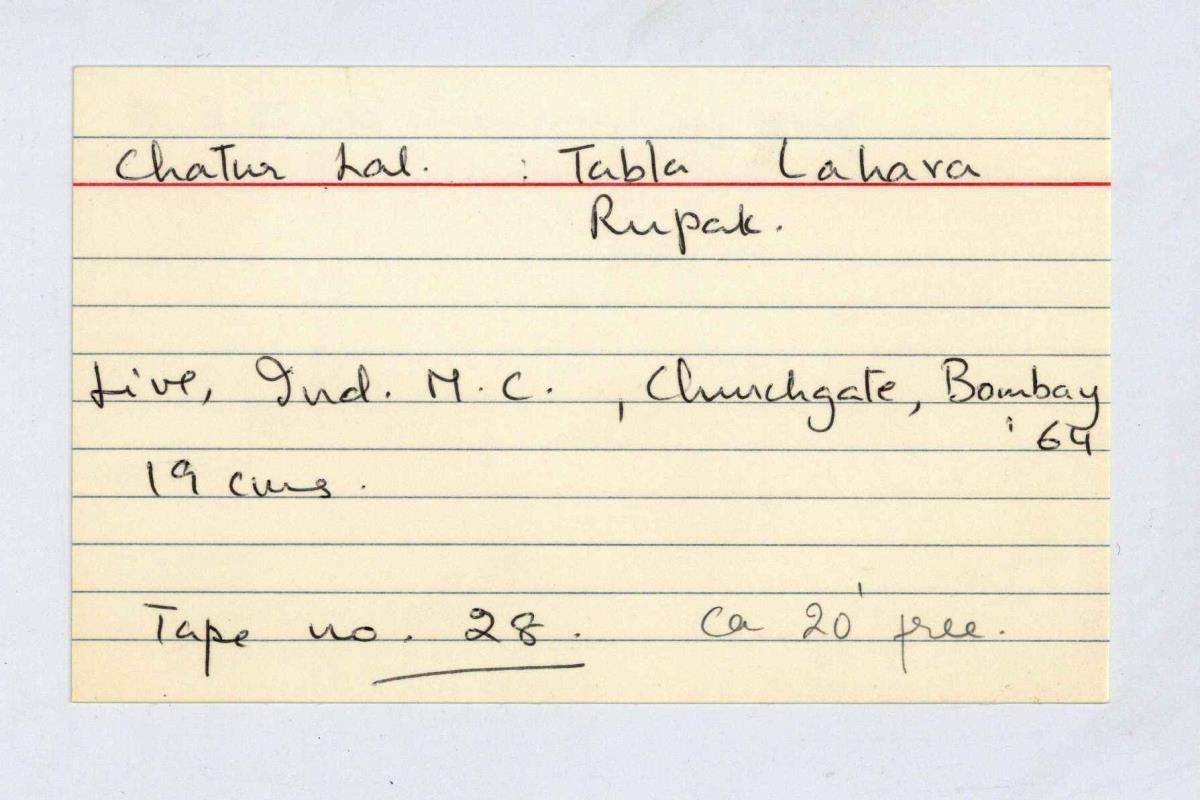 Chatur Lal. : Tabla Lahara
Rupak.
Live, Ind. M. C. , Churchgate, Bombay
'64
19 cms.
Tape no. 28. Ca 20' free.